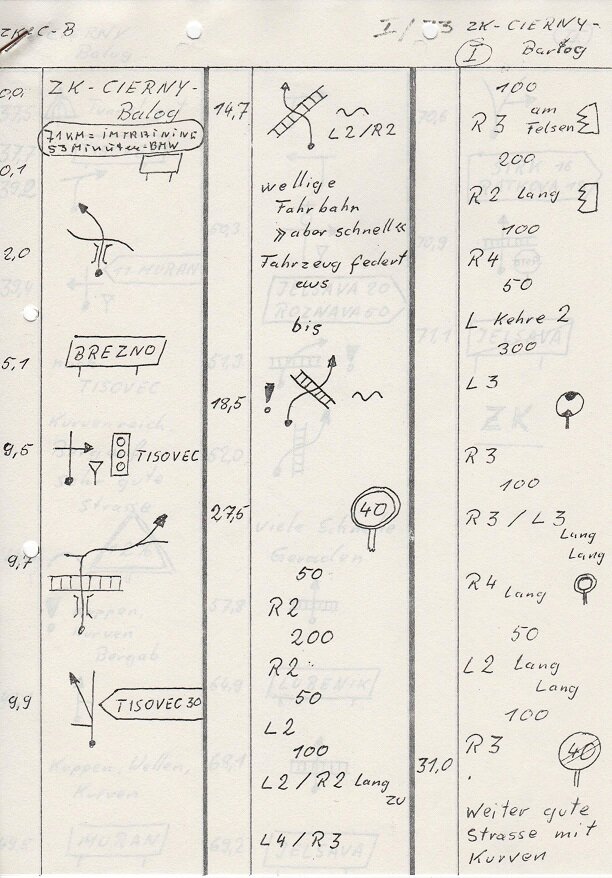 I/73
ZK-CIERNY-
I Barlog
0,0
ZK-CIERNY-
Balog
71 KM = IMTRAINING
53 Minuten-BMW
0,1
2,0
5,1
BREZNO
9,5
TISOVEC
9,7
9,9
TISOVEC 30
14,7
L2/R2
wellige
Fahrbahn
»aber schnell«
Fahrzeug federt
aus
bis
18,5
!
27,5
40
50
R2
200
R2
50
L2
100
L2/R2 Lang
zu
L4/R3
100
R3 am
Felsen
200
R2 Lang
100
R4
50
L Kehre 2
300
L3
R3
100
R3/L3
Lang
Lang
R4 Lang
50
L2 Lang
Lang
100
31,0
R3
40
Weiter gute
Strasse mit
Kurven